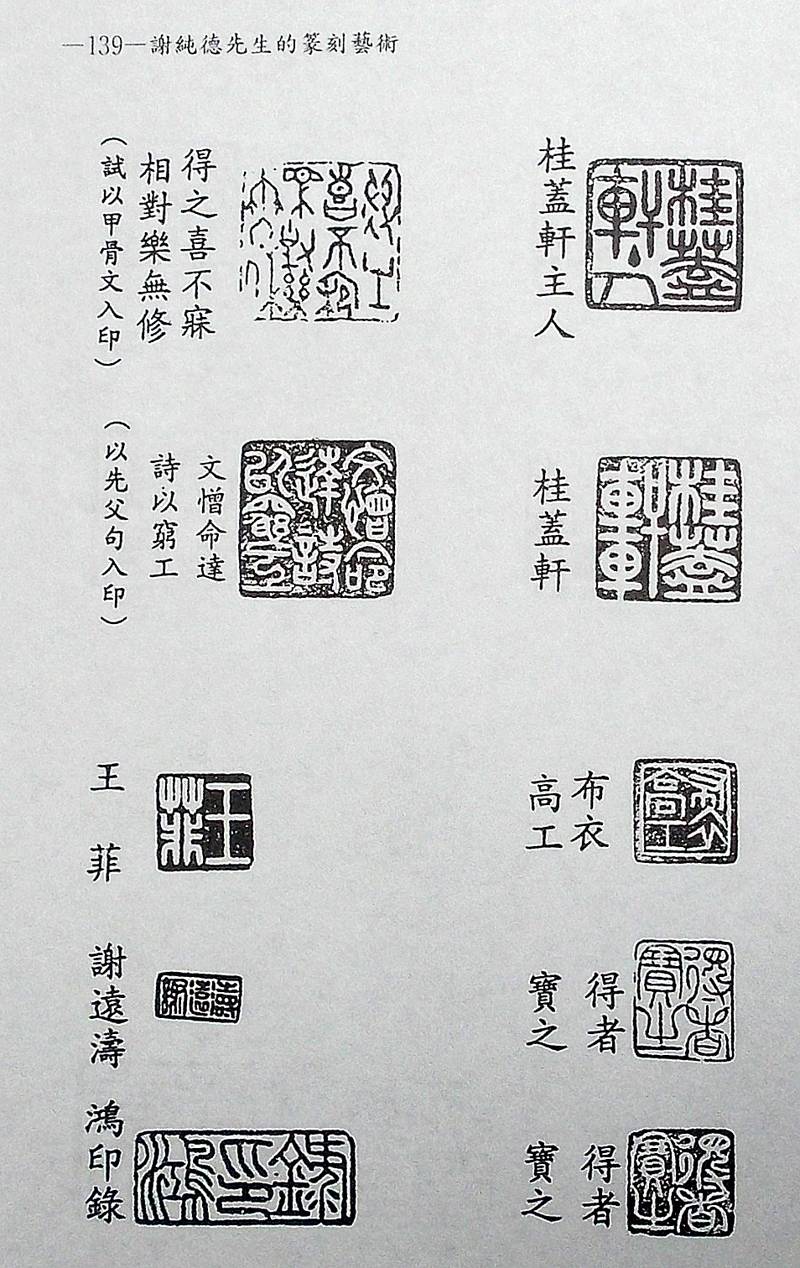 —139—謝純德先生的篆刻藝術
桂蓋軒主人
桂蓋軒
布衣
高工
得者
寶之
得者
寶之
得之喜不寐
相對樂無修
（試以甲骨文入印）
文憎命達
詩以窮工
（以先父句入印）
王菲
謝遠濤
鴻印錄